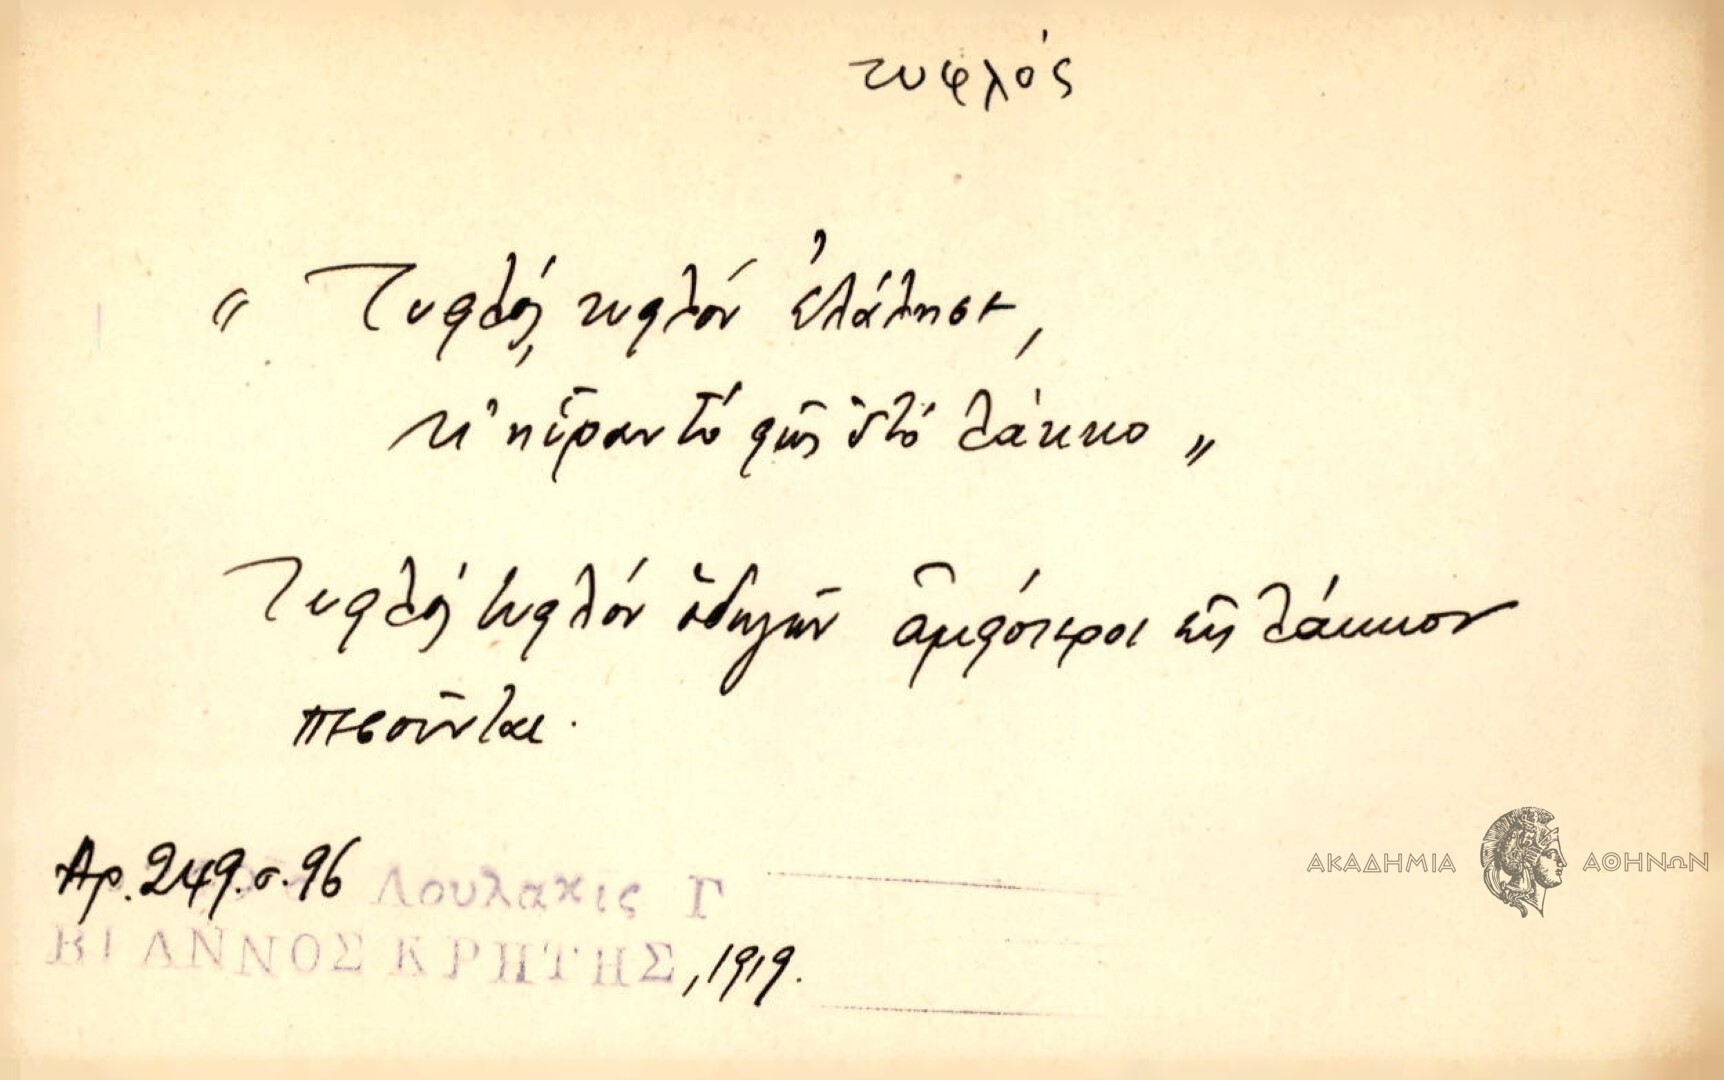 τυφλός
"Τυφλός, τυφλόν ἐλάλησε,
κι' ηὗραν τό φῶς 'στό λάκκο"
Τυφλός τυφλόν ὁδηγῶν ἀμφότεροι εἰς λάκκον
πεσοῦνται.
Αρ. 249. σ. 96 Λουλακις Γ
ΒΙΑΝΝΟΣ ΚΡΗΤΗΣ, 1919.
ΑΚΑΔΗΜΙΑ ΑΘΗΝΩΝ